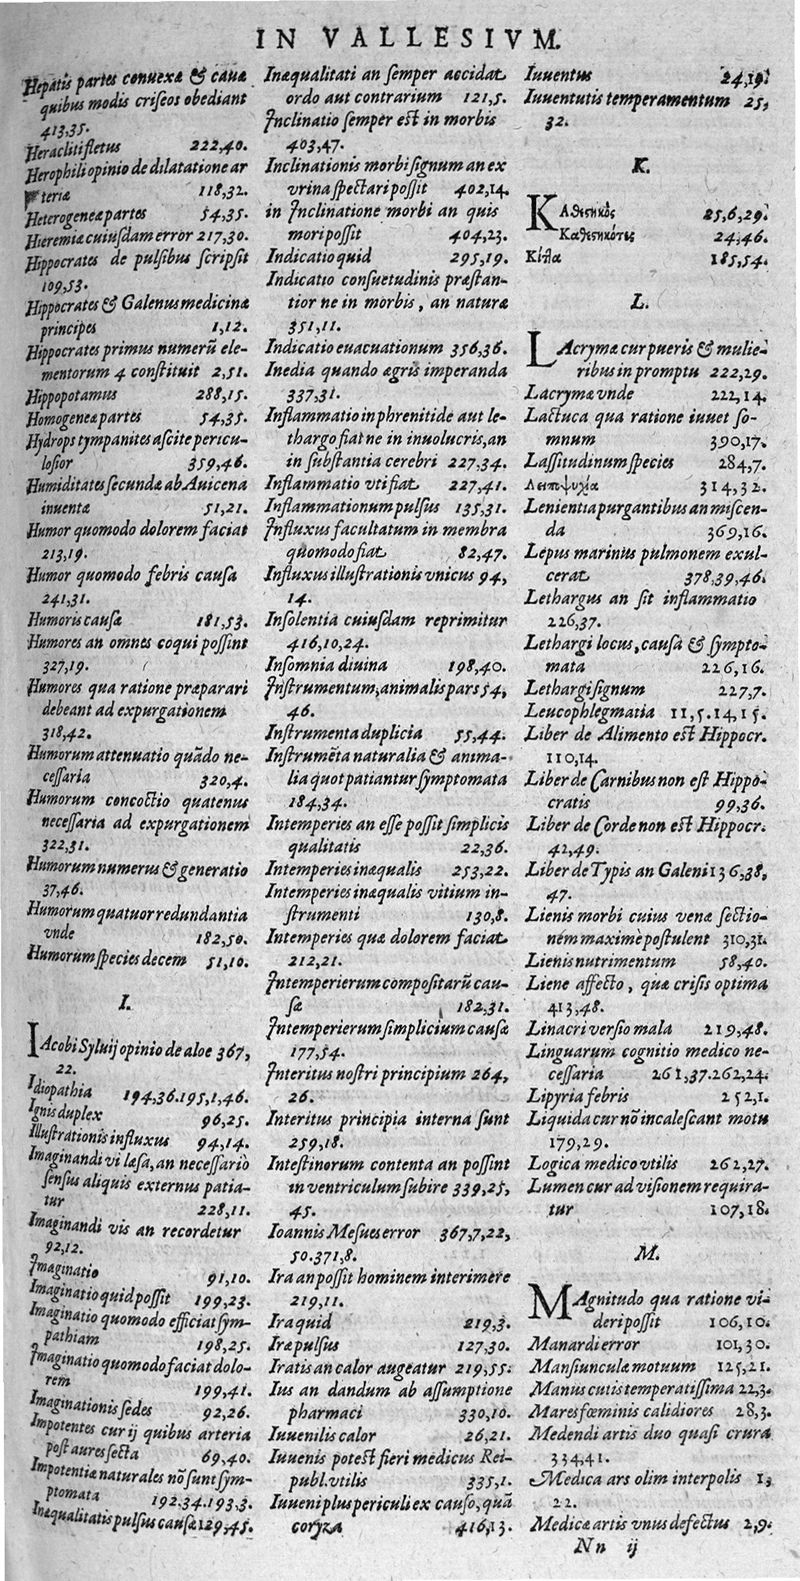 IN VALLESIVM.
Hepatis partes conuexæ & cauæ
quibus modis criseos obediant
413,35.
Heracliti fletus 222,40.
Herophili opinio de dilatatione ar
teriæ 118,32.
Heterogeneæ partes 54,35.
Hieremiæ cuiusdam error 217,30.
Hippocrates de pulsibus scripsit
109,53.
Hippocrates & Galenus medicinæ
principes 1,12.
Hippocrates primus numerũ ele-
mentorum 4 constituit 2,51.
Hippopotamus 288,15.
Homogeneæ partes 54,35.
Hydrops tympanites ascite pericu-
losior 359,46.
Humiditates secundæ ab Auicena
inuentæ 51,21.
Humor quomodo dolorem faciat
213,19.
Humor quomodo febris causa
241,31.
Humoris causæ 181,53.
Humores an omnes coqui possint
327,19.
Humores qua ratione præparari
debeant ad expurgationem
318,42.
Humorum attenuatio quãdo ne-
cessaria 320,4.
Humorum concoctio quatenus
necessaria ad expurgationem
322,31.
Humorum numerus & generatio
37,46.
Humorum quatuor redundantia
vnde 182,50.
Humorum species decem 51,10.
I.
IAcobi Syluij opinio de aloe 367,
22.
Idiopathia 194,36.195,1,46.
Ignis duplex 96,25.
Illustrationis influxus 94,14.
Imaginandi vi læsa, an necessariò
sensus aliquis externus patia-
tur 228,11.
Imaginandi vis an recordetur
92,12.
Imaginatio 91,10.
Imaginatio quid possit 199,23.
Imaginatio quomodo efficiat sym-
pathiam 198,25.
Imaginatio quomodo faciat dolo-
rem 199,41.
Imaginationis sedes 92,26.
Impotentes cur ij quibus arteria
post aures secta 69,40.
Impotentiæ naturales nõ sunt sym-
ptomata 192.34.193,3.
Inæqualitatis pulsus causæ 129,45.
Inæqualitati an semper accidat
ordo aut contrarium 121,5.
Inclinatio semper est in morbis
403,47.
Inclinationis morbi signum an ex
vrina spectari possit 402,14.
in Inclinatione morbi an quis
mori possit 404,23.
Indicatio quid 295,19.
Indicatio consuetudinis præstan-
tior ne in morbis, an naturæ
351,11.
Indicatio euacuationum 356,36.
Inedia quando ægris imperanda
337,31.
Inflammatio in phrenitide aut le-
thargo fiat ne in inuolucris, an
in substantia cerebri 227,34.
Inflammatio vti fiat 227,41.
Inflammationum pulsus 135,31.
Influxus facultatum in membra
quomodo fiat 82,47.
Influxus illustrationis vnicus 94,
14.
Insolentia cuiusdam reprimitur
416,10,24.
Insomnia diuina 198,40.
Instrumentum, animalis pars 54,
46.
Instrumenta duplicia 55,44.
Instrumẽta naturalia & anima-
lia quot patiantur symptomata
184,34.
Intemperies an esse possit simplicis
qualitatis 22,36.
Intemperies inæqualis 253,22.
Intemperies inæqualis vitium in-
strumenti 130,8.
Intemperies quæ dolorem faciat
212,21.
Intemperierum compositarũ cau-
sæ 182,31.
Intemperierum simplicium causæ
177,54.
Interitus nostri principium 264,
26.
Interitus principia interna sunt
259,18.
Intestinorum contenta an possint
in ventriculum subire 339,25,
45.
Ioannis Mesues error 367,7,22,
50.371,8.
Ira an possit hominem interimere
219,11.
Ira quid 219,3.
Iræ pulsus 127,30.
Iratis an calor augeatur 219,55.
Ius an dandum ab assumptione
pharmaci 330,10.
Iuuenilis calor 26,21.
Iuuenis potest fieri medicus Rei-
publ. vtilis 335,1.
Iuueni plus periculi ex causo, quã
coryza 416,13.
Iuuentus 24,19.
Iuuentutis temperamentum 25,
32.
K.
KΑθεστηκὸς 25,6,29.
Καθεστηκότες 24,46.
185,54.
L.
LAcrymæ cur pueris & mulie-
ribus in promptu 222,29.
Lacrymæ vnde 222,14.
Lactuca qua ratione iuuet so-
mnum 390,17.
Lassitudinum species 284,7.
Λειποψυχία 314,32.
Lenientia purgantibus an miscen-
da 369,16.
Lepus marinus pulmonem exul-
cerat 378,39,46.
Lethargus an sit inflammatio
226,37.
Lethargi locus, causa & sympto-
mata 226,16.
Lethargi signum 227,7.
Leucophlegmatia 11,5.14,15.
Liber de Alimento est Hippocr.
110,14.
Liber de Carnibus non est Hippo-
cratis 99,36.
Liber de Corde non est Hippocr.
42,49.
Liber de Typis an Galeni 136,38,
47.
Lienis morbi cuius venæ sectio-
nem maximè postulent 310,31.
Lienis nutrimentum 58,40.
Liene affecto, quæ crisis optima
413,48.
Linacri versio mala 219,48.
Linguarum cognitio medico ne-
cessaria 261,37.262,24.
Lipyria febris 252,1.
Liquida cur nõ incalescant motu
179,29.
Logica medico vtilis 262,27.
Lumen cur ad visionem requira-
tur 107,18.
M.
MAgnitudo qua ratione vi-
deri possit 106,10.
Manardi error 101,30.
Mansiunculæ motuum 125,21.
Manus cutis temperatissima 22,3.
Mares fœminis calidiores 28,3.
Medendi artis duo quasi crura
334,41.
Medica ars olim interpolis 1,
22.
Medicæ artis vnus defectus 2,9.
Nn ij